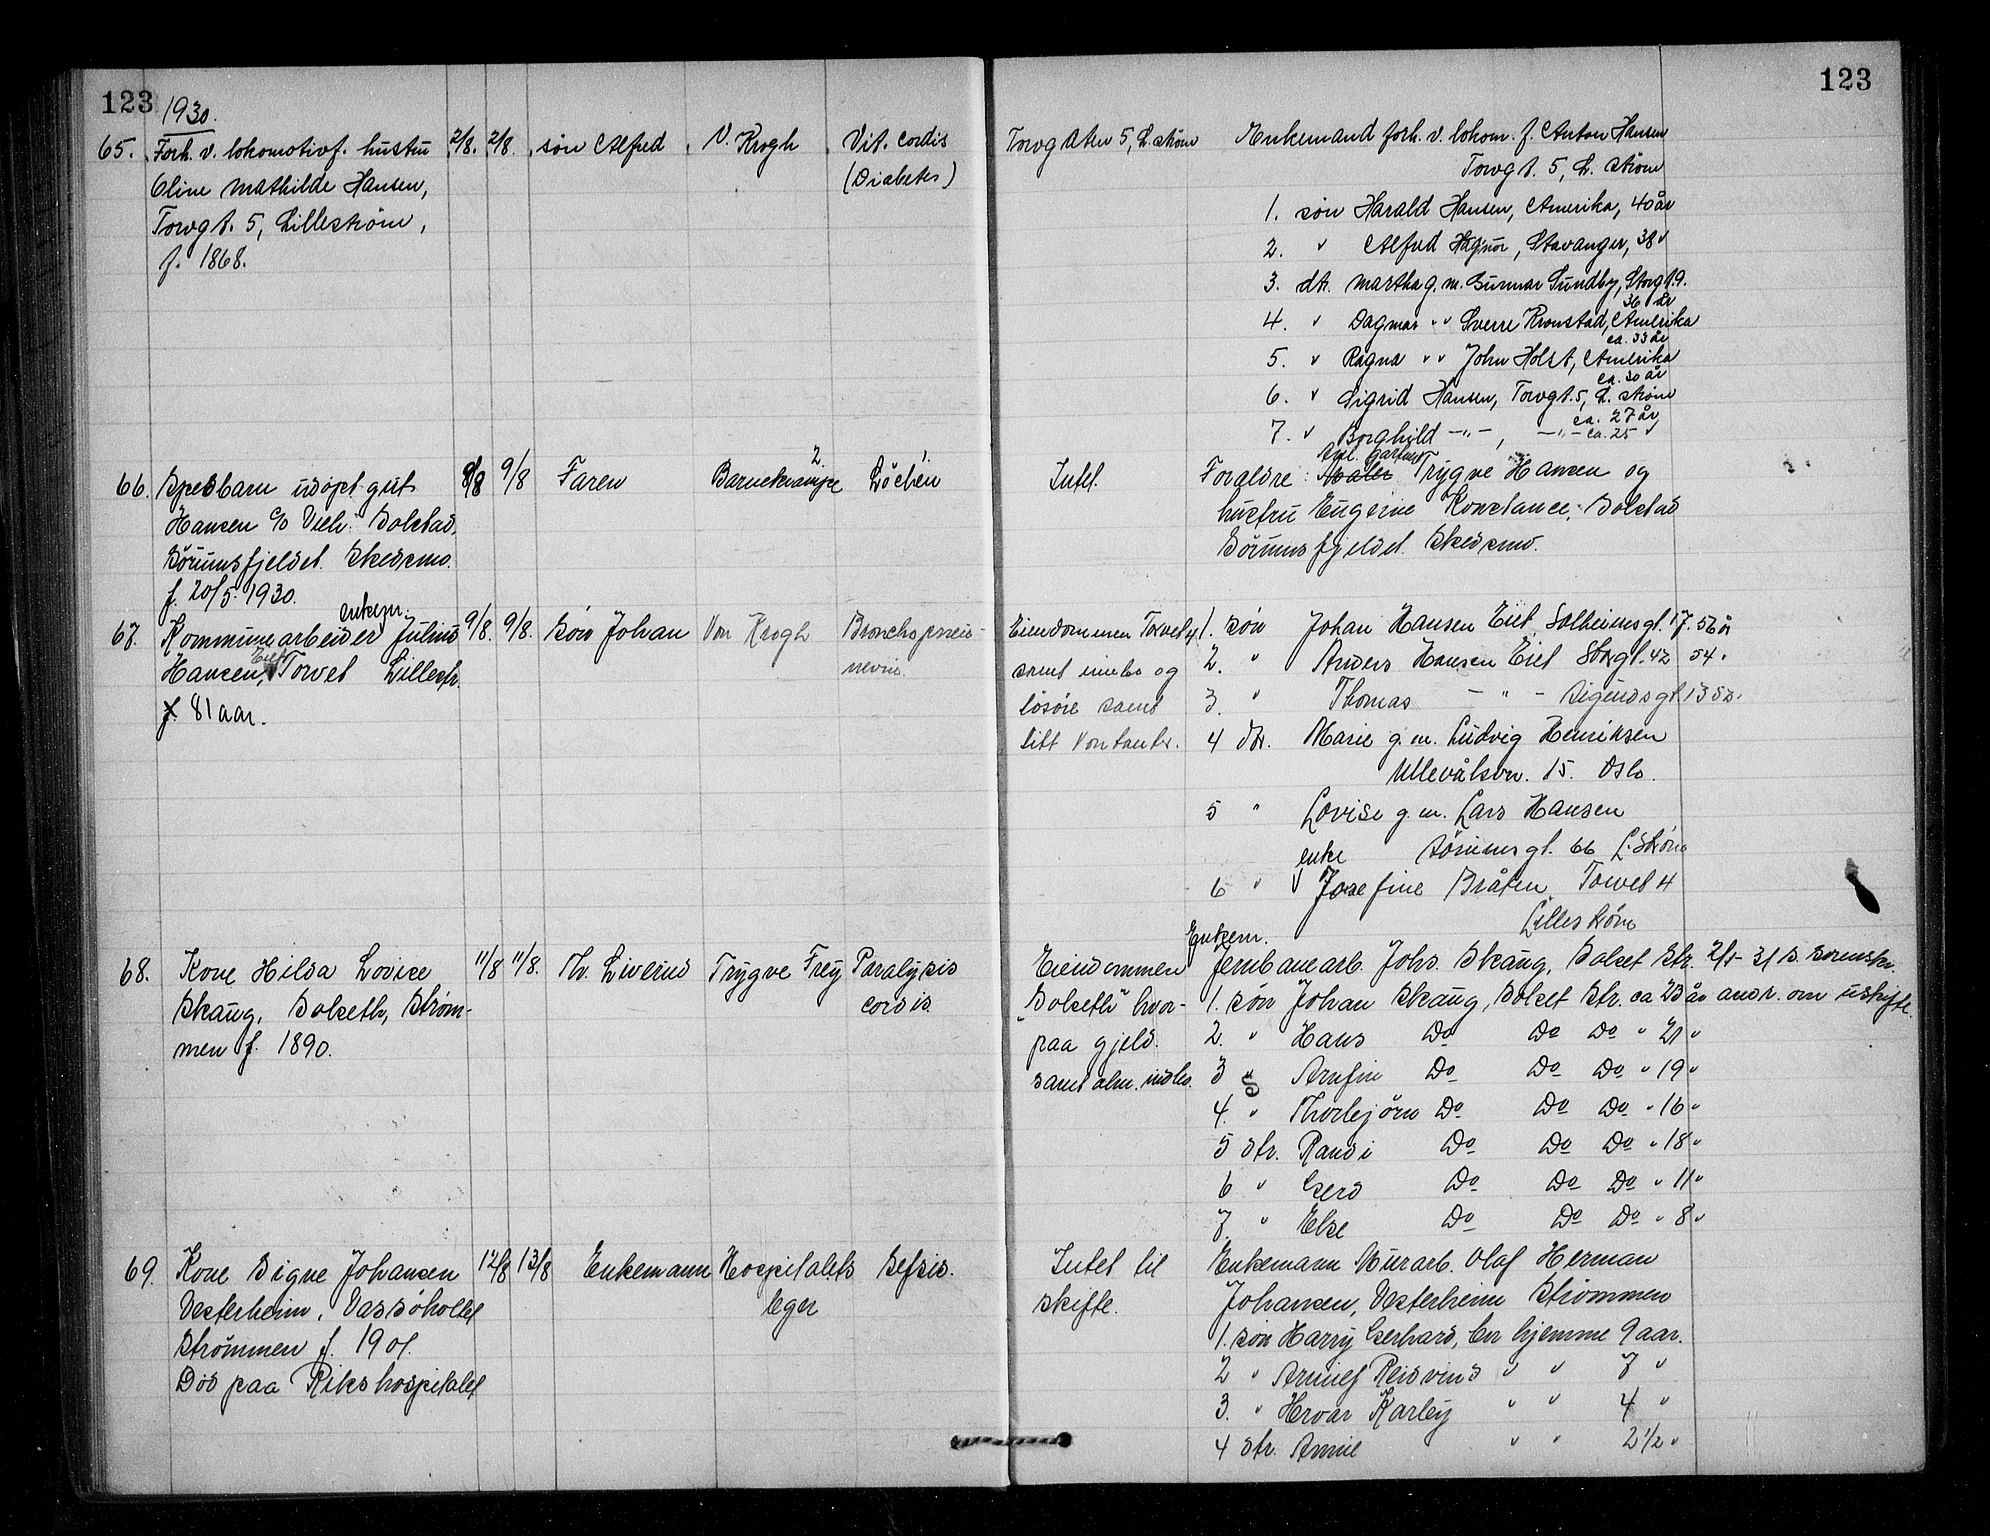 123
1930.
65. Forh. v. lokomotivf. hustru 2/8. 2/8. søn Alfred V. Krogh Vit. cordis
Oline Mathilde Hansen, (Diabetes)
Torvgt. 5, Lillestrøm,
f. 1868.
66. Spedbarn udøpt gut 8/8 9/8 Faren Barnekrampe 2. Löchen 1.
Hansen c/o Vilh. Bolstad,
Sörumsfjeldet. Skedsmo.
f. 20/5 1930.
enkem.
67. Kommunearbeider Julius 9/8. 9/8. Søn Johan Von Krogh Bronchopneu-
Hansen, Eiet Torvet Lillestr. monia.
f. 81 aar.
68. Kone Hilda Lovise 11/8 11/8. Th. Liverud Trygve Frey Paralysis
Skaug, Bolseth, Strøm- cordis.
men f. 1890.
69. Kone Signe Johansen 12/8 13/8 Enkemann Hospitalets Sepsis.
Vesterheim, Vassøholtet leger
Strømmen f. 1901.
Död paa Rikshospitalet
123
Torvgaten 5, L. strøm Enkemand forh. v. lokom. f. Anton Hansen
Torvgt. 5, L. strøm
1. søn Harald Hansen, Amerika, 40 år
2. " Alfred Hagnor, Stavanger, 38 "
3. dt. Martha g. m. Gunnar Sundby, Storgt. 9.
36 år
4. " Dagmar " " Sverre Kronstad, Amerika
ca. 33 år
5. " Ragna " " John Holst, Amerika
ca. 30 år
6. " Sigrid Hansen, Torvgt. 5, L. strøm
ca. 27 år
7. " Borghild -"-, -"- ca. 25 "
Intet. Foraldre: Trygve Hansen og
hustru Eugenie Konstance, Bolstad
Sörumsfjeldet. Skedsmo.
Eiendommen Torvet 4 1. søn Johan Hansen Eiet, Solheimsgt. 17. 56 år
samt innbo og 2. " Anders Hansen Eiet Storgt. 42 54 "
løsøre samt 3. " Thomas - " - Sigurdsgt. 13 52 "
litt kontanter. 4 dtr. Marie g. m. Ludvig Henriksen
Ullevålsvn. 15. Oslo.
5 " Lovise g. m. Lars Hansen
Sörumsgt. 66 L. Strøm
enke
6 " Josefine Bråten Torvet 4
Lillestrøm
Enkem.
Eiendommen Jernbanearb. Johs. Skaug, Bolset Str. 2/9-31 B. sorenskr.
"Bolseth" hvor- 1. søn Johan Skaug, Bolset Str. ca 23 år andr. om uskifte.
paa gjeld. 2. " Hans Do Do Do " 21 "
samt alm. indbo. 3 " Arnfin Do Do Do " 19 "
4. " Thorbjörn Do Do Do " 16 "
5 dtr. Randi Do Do Do " 18 "
6 " Gerd Do Do Do " 11 "
7. " Else Do Do Do " 8 "
Intet til Enkemann Murarb. Olaf Herman
skifte. Johansen, Vesterheim Strømmen
1. søn Harry Gerhard, er hjemme 9 aar.
2 " Reidvind " " 7 "
3. " Hervar Karley " " 4 "
4 dtr. Annie " " 2 1/2 "